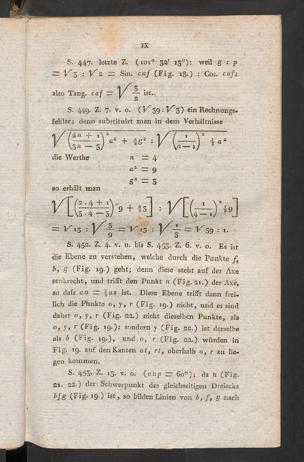 IX
S. 447. letzte Z. (101° 32′ 13″): weil g : p
= √3 : √2 = Sin. caf (Fig. 18.) : Cos. caf:
also Tang. caf = √3/2 ist.
S. 449. Z. 7. v. o. (√39 : √3) ein Rechnungs-
fehler; denn substituirt man in dem Verhältnisse
die Werthe n = 4
a² = 9
so erhält man
= √13 : √3/9 = √13 : √1/3 = √39 : 1.
S. 452. Z. 4. v. u. bis S. 453. Z. 6. v. o. Es ist
die Ebene zu verstehen, welche durch die Punkte f,
b, g (Fig. 19.) geht; denn diese steht auf der Axe
senkrecht, und trifft den Punkt n (Fig. 21.) der Axe,
so daſs an = ⅓ as ist. Diese Ebene trifft dann frei-
lich die Punkte o, y, r (Fig. 19.) nicht, und es sind
daher o, y, r (Fig. 22.) nicht dieselben Punkte, als
o, y, r (Fig. 19.); sondern y (Fig. 22.) ist derselbe
als b (Fig. 19.), und o, r (Fig. 22.) würden in
Fig. 19. auf den Kanten ot, rt, oberhalb o, r zu lie-
gen kommen.
S. 453. Z. 13. v. o. (onp = 60°); da n (Fig.
21. 22.) der Schwerpunkt des gleichseitigen Dreiecks
bfg (Fig. 19.) ist, so bilden Linien von b, f, g nach